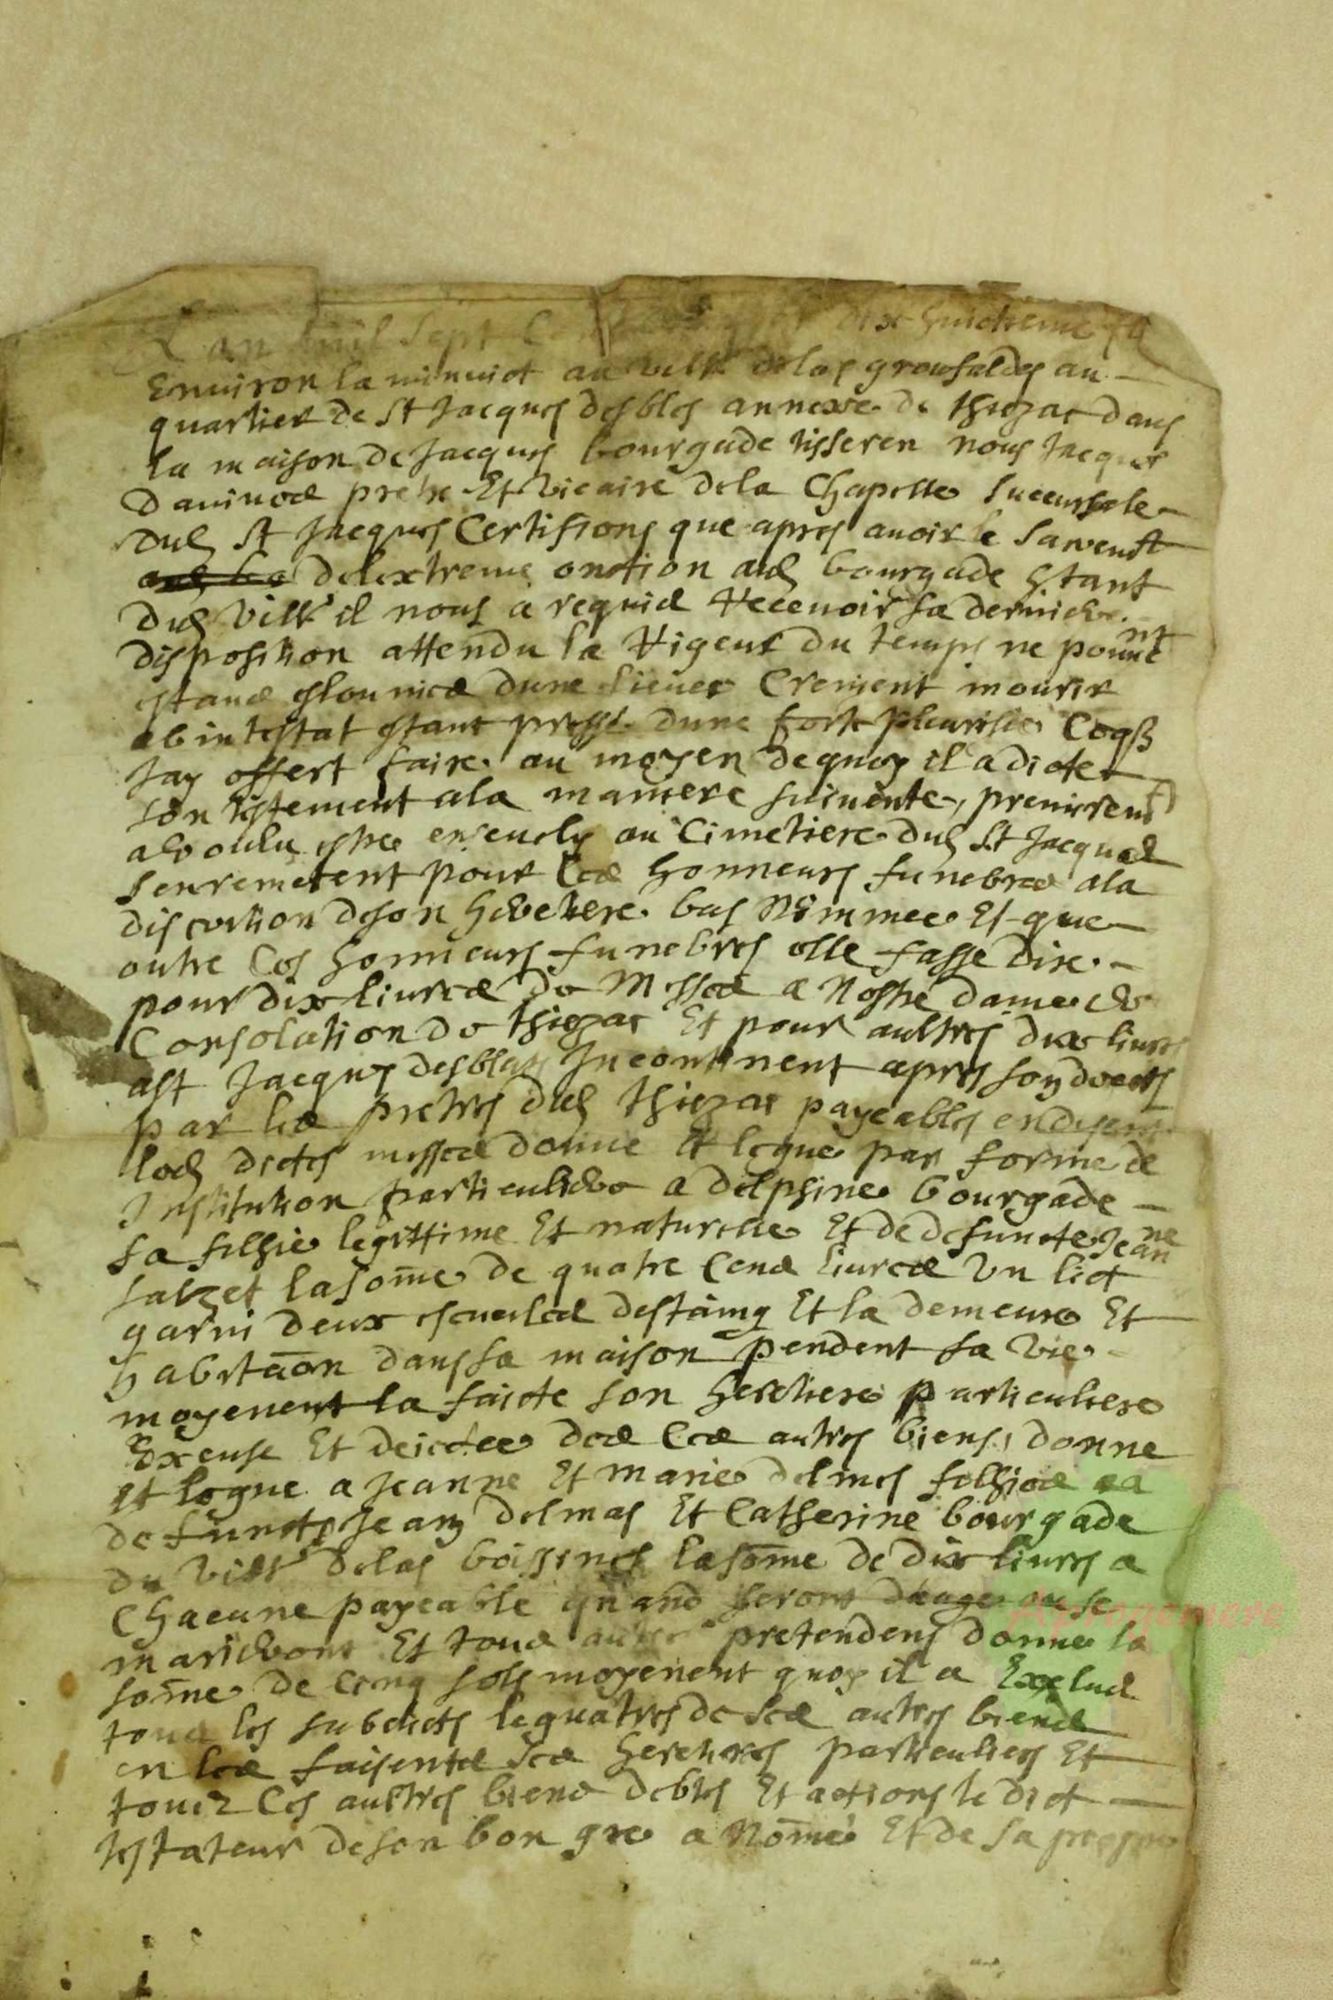 L'an mil sept cent dix huictieme
Environ la minuict au villt de las grousaldes au
quartier de St Jacques des bles annexe de thiezac dans
la maison de Jacques bourgade tisseren nous Jacques
pretre Et vicaire de la Chapelle succursale
dud St Jacques Certifions que apres avoir le
de lextreme onction aud bourgade Estant
dud villt il nous a requis Recevoir sa derniere
disposition attendu la Rigeur du temps ne pouvnt
dune lieue Creniant mourir
abintestat estant presse dune forte pleurisie
Jay offert faire au moyen de quoy il a dicte
son testement a la maniere suivente, premirent
a voulu estre ensevely au Cimetiere dud St Jacques
sen remetent pour ses honneurs funebres a la
discretion de son heretiere bas nommee Et que
outre les honneurs funebres elle fasse dire
pour dix livres de Messes a Nostre dame de
Consolation de thiezac Et pour aultres dix livres
a St Jacques des blats Incontinent apres son deces
par les pretres dud thiezac payeables en disent
lesd dictes messes donne Et legue par forme de
Institution particuliere a delphine bourgade
sa filhie legittime Et naturelle Et de defuncte Jeanne
salzet la some de quatre cens livres un lict
garni deux escuelles destaing Et la demeure Et
habitaon dans sa maison pendent sa vie
moyenent la faicte son heretiere particuliere
Et dejectee des ses autres biens, donne
Et legue a Jeanne Et Marie delmas filhies a
defuncts Jean delmas Et Catherine bourgade
du villt de las boissines la some de dix livres a
Chacune payeable quand seront dage ou se
marieront Et tous autres pretendens donne la
some de cinq sols moyenent quoy il a Exclud
tous les subdicts leguatres de ses autres biens
en les faisents ses heretiers particuliers Et
touts les aultres biens debtes Et actions le dict
testateur de son bon gre a nomé Et de sa propre
Aprogemere